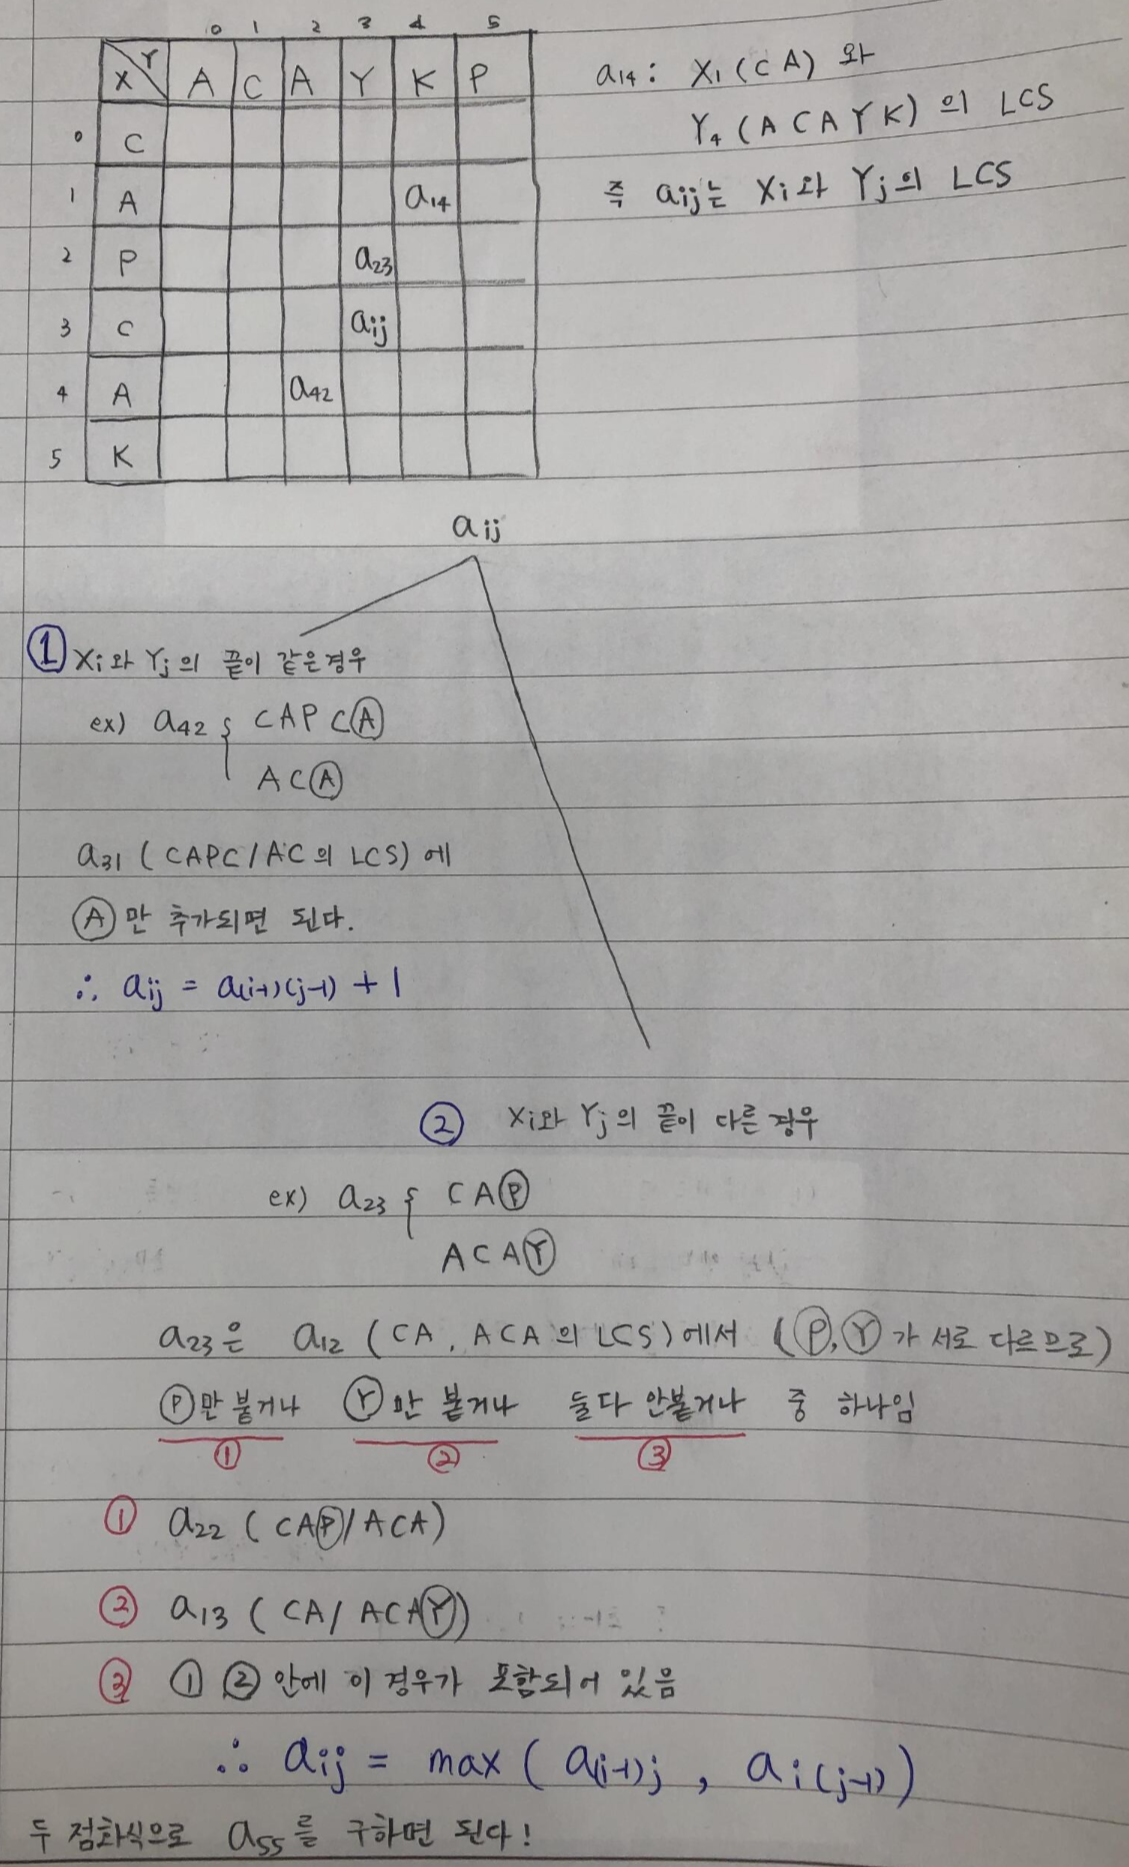 0 1 2 3 4 5
X Y A C A Y K P
0 C
1 A a14
2 P a23
3 C aij
4 A a42
5 K
a14 : X1 (CA) 와
Y4 (ACAYK) 의 LCS
즉 aij는 Xi와 Yj의 LCS
aij
① Xi와 Yj의 끝이 같은경우
ex) a42 { CAPCⒶ
ACⒶ
a31 ( CAPC / AC의 LCS) 에
Ⓐ만 추가되면 된다.
∴ aij = a(i-1)(j-1) + 1
② Xi와 Yj의 끝이 다른 경우
ex) a23 { CAⓅ
ACAⓎ
a23은 a12 ( CA, ACA의 LCS)에서 (Ⓟ,Ⓨ가 서로 다르므로)
Ⓟ만 붙거나 Ⓨ만 붙거나 둘다 안붙거나 중 하나임
① ② ③
① a22 ( CAⓅ/ACA)
② a13 ( CA/ ACAⓎ)
③ ① ② 안에 이 경우가 포함되어 있음
∴ aij = max ( a(i-1)j , ai(j-1) )
두 점화식으로 a55를 구하면 된다!